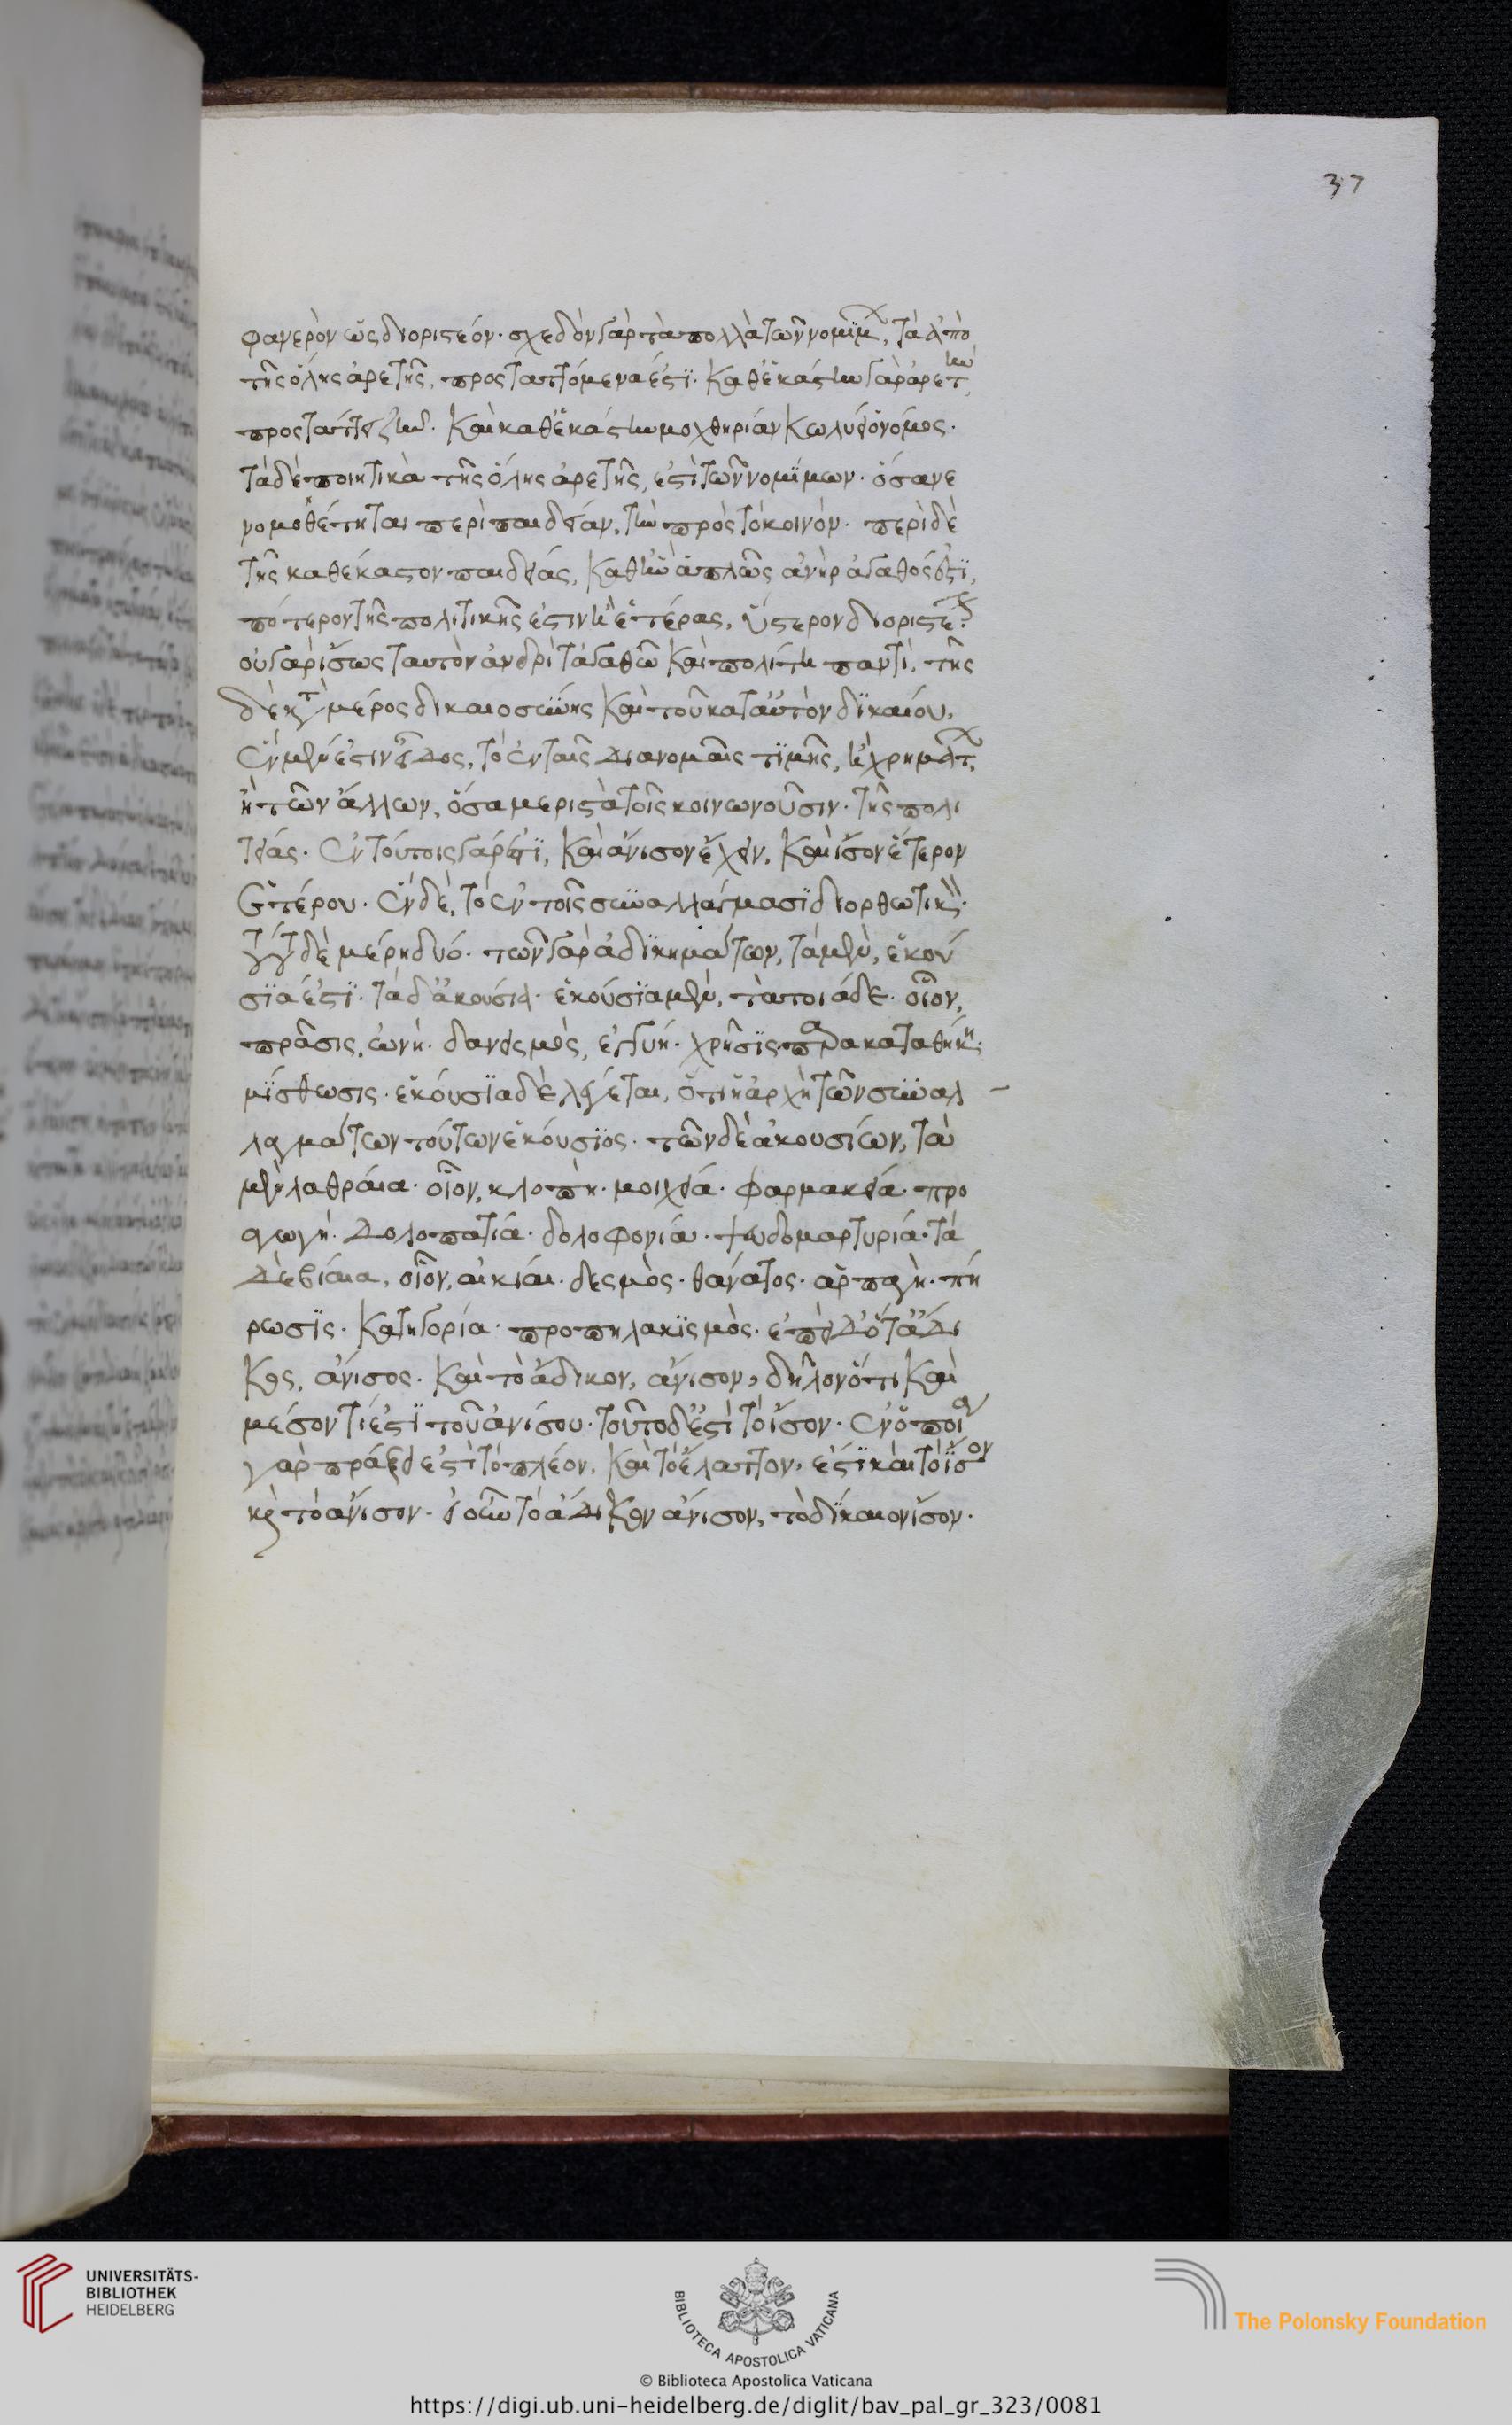 37
φανερὸν ὡς διοριστέον· σχεδὸν γὰρ τὰ πολλὰ τῶν νομίμων, τὰ ἀπὸ
τῆς ὅλης ἀρετῆς, προσταττόμενά ἐστι· καθ' ἑκάστην γὰρ ἀρετὴν
προστάττει ζῆν· καὶ καθ' ἑκάστην μοχθηρίαν κωλύει ὁ νόμος·
τὰ δὲ ποιητικὰ τῆς ὅλης ἀρετῆς, ἐστὶ τῶν νομίμων· ὅσα νε
νομοθέτηται περὶ παιδείαν, τὴν πρὸς τὸ κοινόν· περὶ δὲ
τῆς καθέκαστον παιδείας, καθ' ἣν ἁπλῶς ἀνὴρ ἀγαθός ἐστι,
πότερον τῆς πολιτικῆς ἐστιν ἢ ἑτέρας, ὕστερον διοριστέον·
οὐ γὰρ ἴσως ταυτὸν ἀνδρί τ' ἀγαθῶ καὶ πολίτη παντί, τῆς
δὲ κατὰ μέρος δικαιοσύνης καὶ τοῦ κατ' αὐτὸν δικαίου,
ἓν μέν ἐστιν εἶδος, τὸ ἐν ταῖς διανομαῖς τιμῆς, ἢ χρημάτων,
ἢ τῶν ἄλλων, ὅσα μεριστὰ τοῖς κοινωνοῦσιν· τῆς πολι
τείας· ἐν τούτοις γάρ ἐστι, καὶ ἄνισον ἔχειν, καὶ ἴσον ἕτερον
ἑτέρου· ἓν δὲ, τὸ ἐν τοῖς συναλλάγμασι διορθωτικόν·
τούτου δὲ μέρη δύο· τῶν γὰρ ἀδικημάτων, τὰ μὲν, ἑκού
σιά ἐστι· τὰ δ' ἀκούσια· ἑκούσια μὲν, τὰ τοιάδε· οἷον,
πρᾶσις, ὠνή· δανεισμὸς, ἐγγύη· χρῆσις παρακαταθήκη·
μίσθωσις· ἑκούσια δὲ λέγεται, ὅτι ἡ ἀρχὴ τῶν συναλ
λαγμάτων τούτων ἑκούσιος· τῶν δὲ ἀκουσίων, τὰ
μὲν λαθραῖα· οἷον, κλοπὴ· μοιχεία· φαρμακεία· προ
αγωγή· δολοπατία· δολοφονία· ψευδομαρτυρία· τὰ
δὲ βίαια, οἷον, αἰκίαι· δεσμὸς· θάνατος· ἁρπαγὴ· πή
ρωσις· κατηγορία· προπηλακισμὸς· ἐπεὶ δ' ὅ τ' ἄδι
κος, ἄνισος· καὶ τὸ ἄδικον, ἄνισον, δῆλον ὅτι καὶ
μέσον τί ἐστι τοῦ ἀνίσου· τοῦτο δ' ἐστὶ τὸ ἴσον· ἐν ὁποίᾳ
γὰρ πράξει ἐστὶ τὸ πλέον, καὶ τὸ ἔλαττον, ἐστὶ καὶ τὸ ἴσον
καὶ τὸ ἄνισον· εἰ οὖν τὸ ἄδικον ἄνισον, τὸ δίκαιον ἴσον·
UNIVERSITÄTS-
BIBLIOTHEK
HEIDELBERG
BIBLIOTECA APOSTOLICA VATICANA
The Polonsky Foundation
© Biblioteca Apostolica Vaticana
https://digi.ub.uni-heidelberg.de/diglit/bav_pal_gr_323/0081